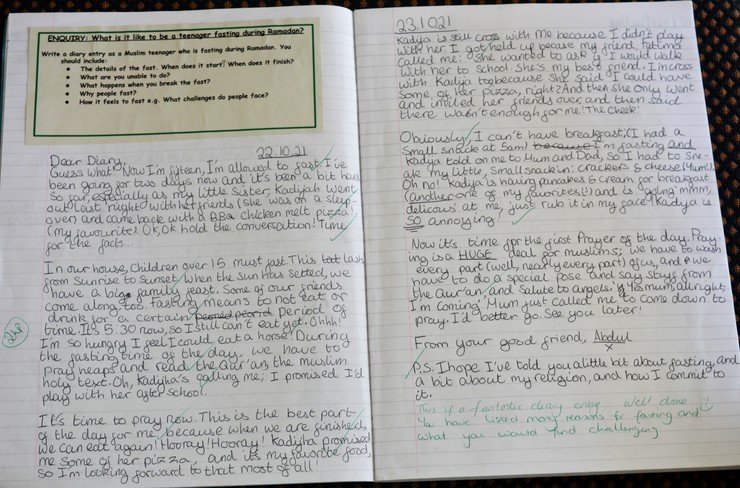 ENQUIRY: What is it like to be a teenager fasting during Ramadan?
Write a diary entry as a Muslim teenager who is fasting during Ramadan. You
should include:
• The details of the fast. When does it start? When does it finish?
• What are you unable to do?
• What happens when you break the fast?
• Why people fast?
• How it feels to fast e.g. What challenges do people face?
22.10.21
Dear Diary,
Guess what! Now I'm fifteen, I'm allowed to fast. I've
been going for two days now and it's been a bit hard
so far, especially as my little sister, Kadijah went
out last night with her friends (she was on a sleep-
over) and came back with a BBQ chicken melt pizza!
(my favourite). Ok, Ok hold the conversation! Time
for the facts..
In our house, Children over 15 must fast. This last lasts
from Sunrise to Sunset. When the sun has setted, we
have a big family feast. Some of our friends
come along, too. Fasting means to not eat or
drink for a certain period of
time. It's 5:30 now, so I still can't eat yet. Ohhh!
I'm so hungry I feel I could eat a horse! During
the fasting time of the day, we have to
pray heaps and read the Qur'an, the muslim
holy text. Oh, Kadyha's calling me; I promised I'd
play with her after school.
It's time to pray now. This is the best part
of the day for me because when we are finished,
we can eat again! Hooray! Hooray! Kadijha promised
me some of her pizza, and it's my favourite food,
so I'm looking forward to that most of all!
23.10.21
Kadija is still cross with me because I didn't play
with her. I got held up becase my friend, Fatima
called me. She wanted to ask if I would walk
with her to school. She's my best friend. I'm cross
with Kadija too because she said I could have
some of her pizza, right? And then she only went
and invited her friends over and then said
there wasn't enough for me! The Cheek!
Obviously, I can't have breakfast, (I had a
small snack at 5am) because I'm fasting and
Kadija told on me to Mum and Dad, so I had to sne-
ak my little, small snack in: crackers & cheese (Mum!)
Oh no! Kadija is having pancakes & cream for breakfast
(another one of my favourites!) and is going 'mmm,
delicous' at me, just rub it in my face! Kadija is
SO annoying!
Now it's time for the first Prayer of the day. Pray-
ing is a HUGE deal for muslims; we have to wash
every part (well, nearly every part) of us, and we
have to do a special pose and say stuff from
the Qur'an, and salute to angels. Yes mum, allright,
I'm coming! Mum just called me to come down to
pray. I'd better go. See you later!
From your good friend, Abdul
x
P.S. I hope I've told you a little bit about fasting, and
a bit about my religion, and how I commit to
it.
This is a fantastic diary entry. Well done
You have listed many reasons for fasting and
what you would find challenging